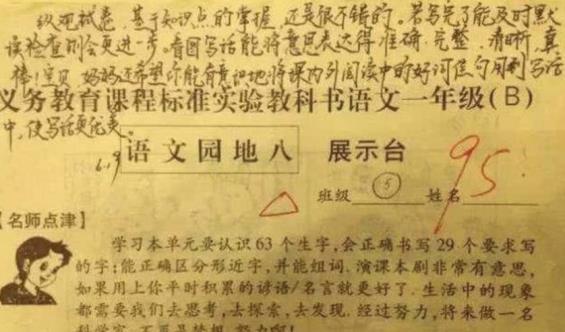 纵观试卷,基于知识点的掌握,还是很不错的。若写完了能及时默
读检查则会更进一步。看图写话能将意思表达得准确、完整、清晰,真
棒!宝贝,妈妈还希望你能有意识地将课内外阅读中的好词佳句用到写话
义务教育课程标准实验教科书语文一年级(B)
中,使写话更优美。
6.19
语文园地八 展示台
班级 5 姓名 95
【名师点津】
学习本单元要认识63个生字,会正确书写29个要求写
的字;能正确区分形近字,并能组词.演课本剧非常有意思,
如果用上你平时积累的谚语/名言就更好了.生活中的现象
都需要我们去思考,去探索,去发现.经过努力,将来做一名
科学家 不再是梦想 努力啊!